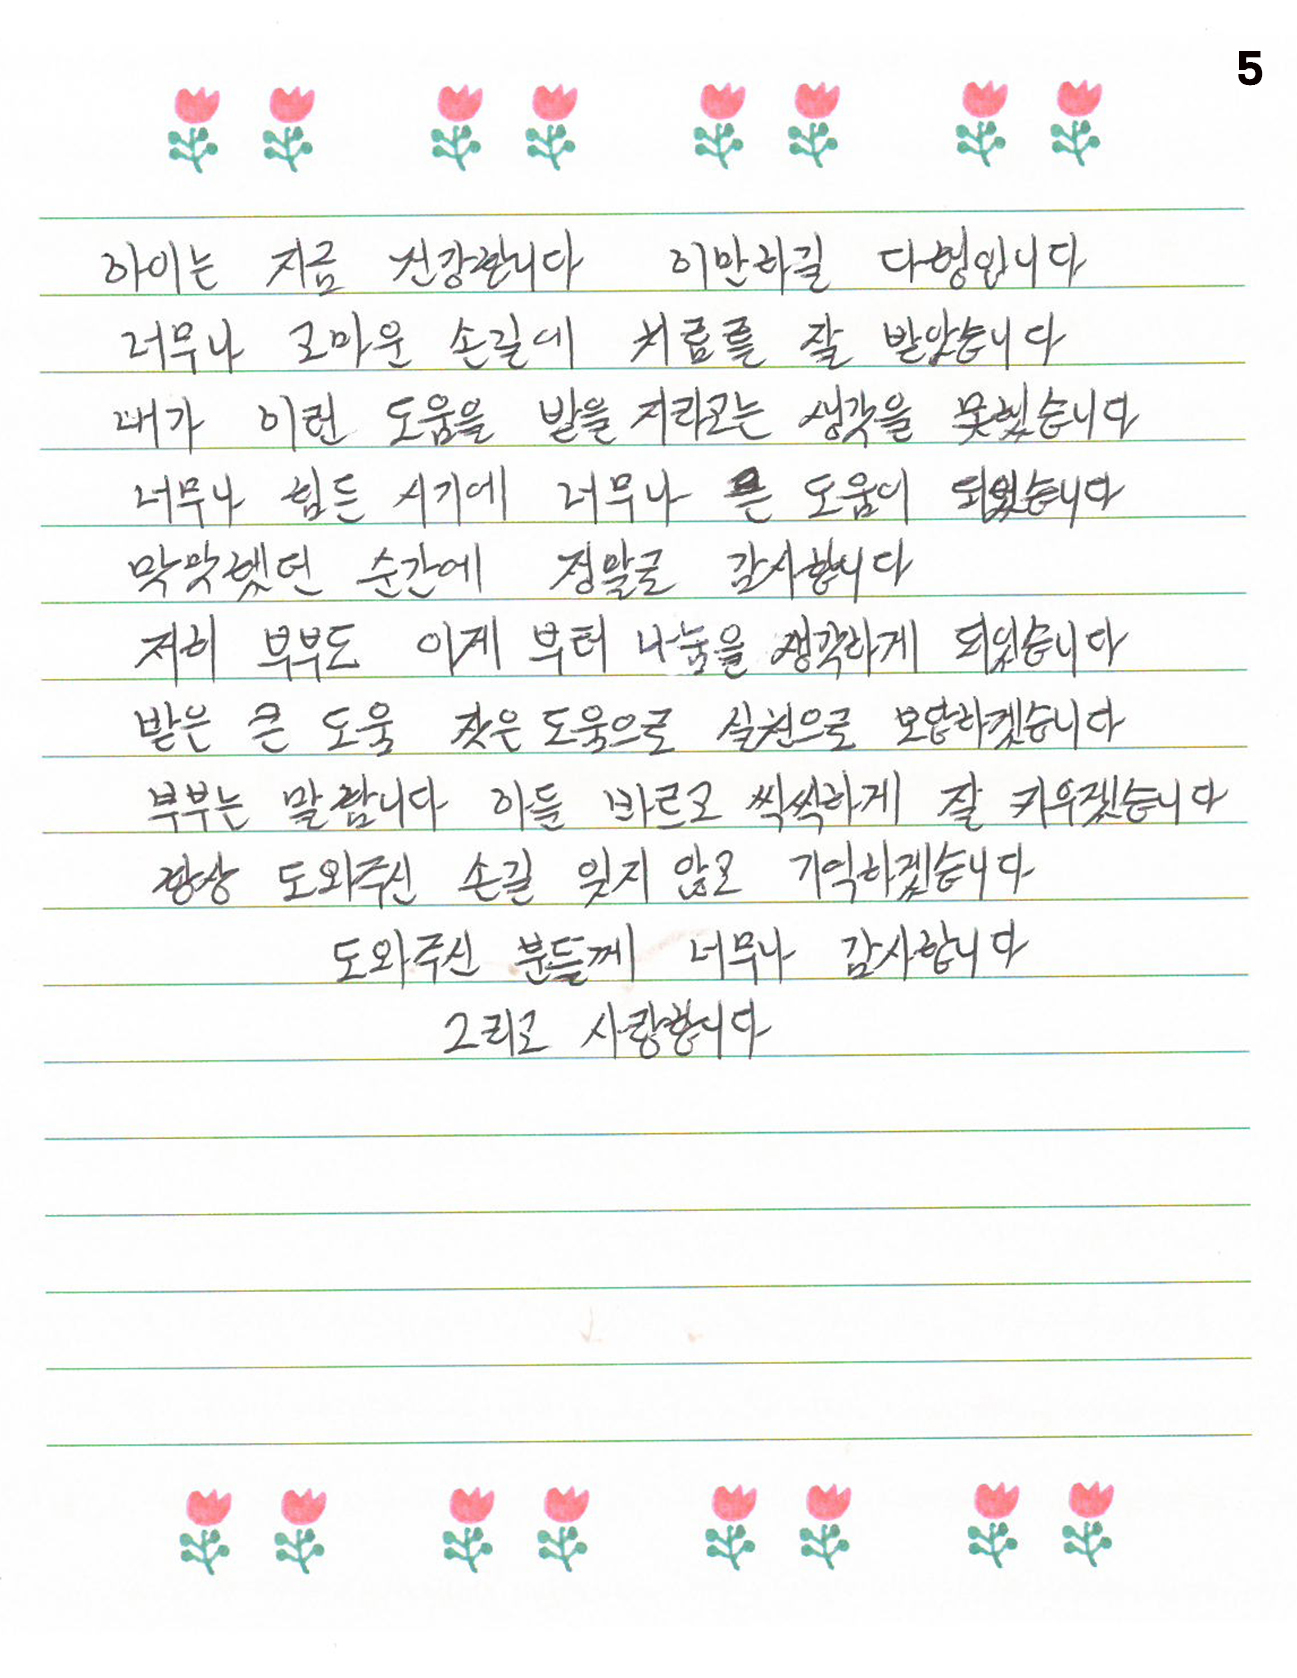 5
아이는 지금 건강합니다 이만하길 다행입니다
너무나 고마운 손길에 치료를 잘 받았습니다
내가 이런 도움을 받을 지라고는 생각을 못했습니다
너무나 힘든 시기에 너무나 큰 도움이 되었습니다
막막했던 순간에 정말로 감사합니다
저희 부부도 이제 부터 나눔을 생각하게 되었습니다
받은 큰 도움 작은 도움으로 실천으로 보답하겠습니다
부부는 말합니다 아들 바르고 씩씩하게 잘 키우겠습니다
항상 도와주신 손길 잊지 않고 기억하겠습니다
도와주신 분들께 너무나 감사합니다
그리고 사랑합니다